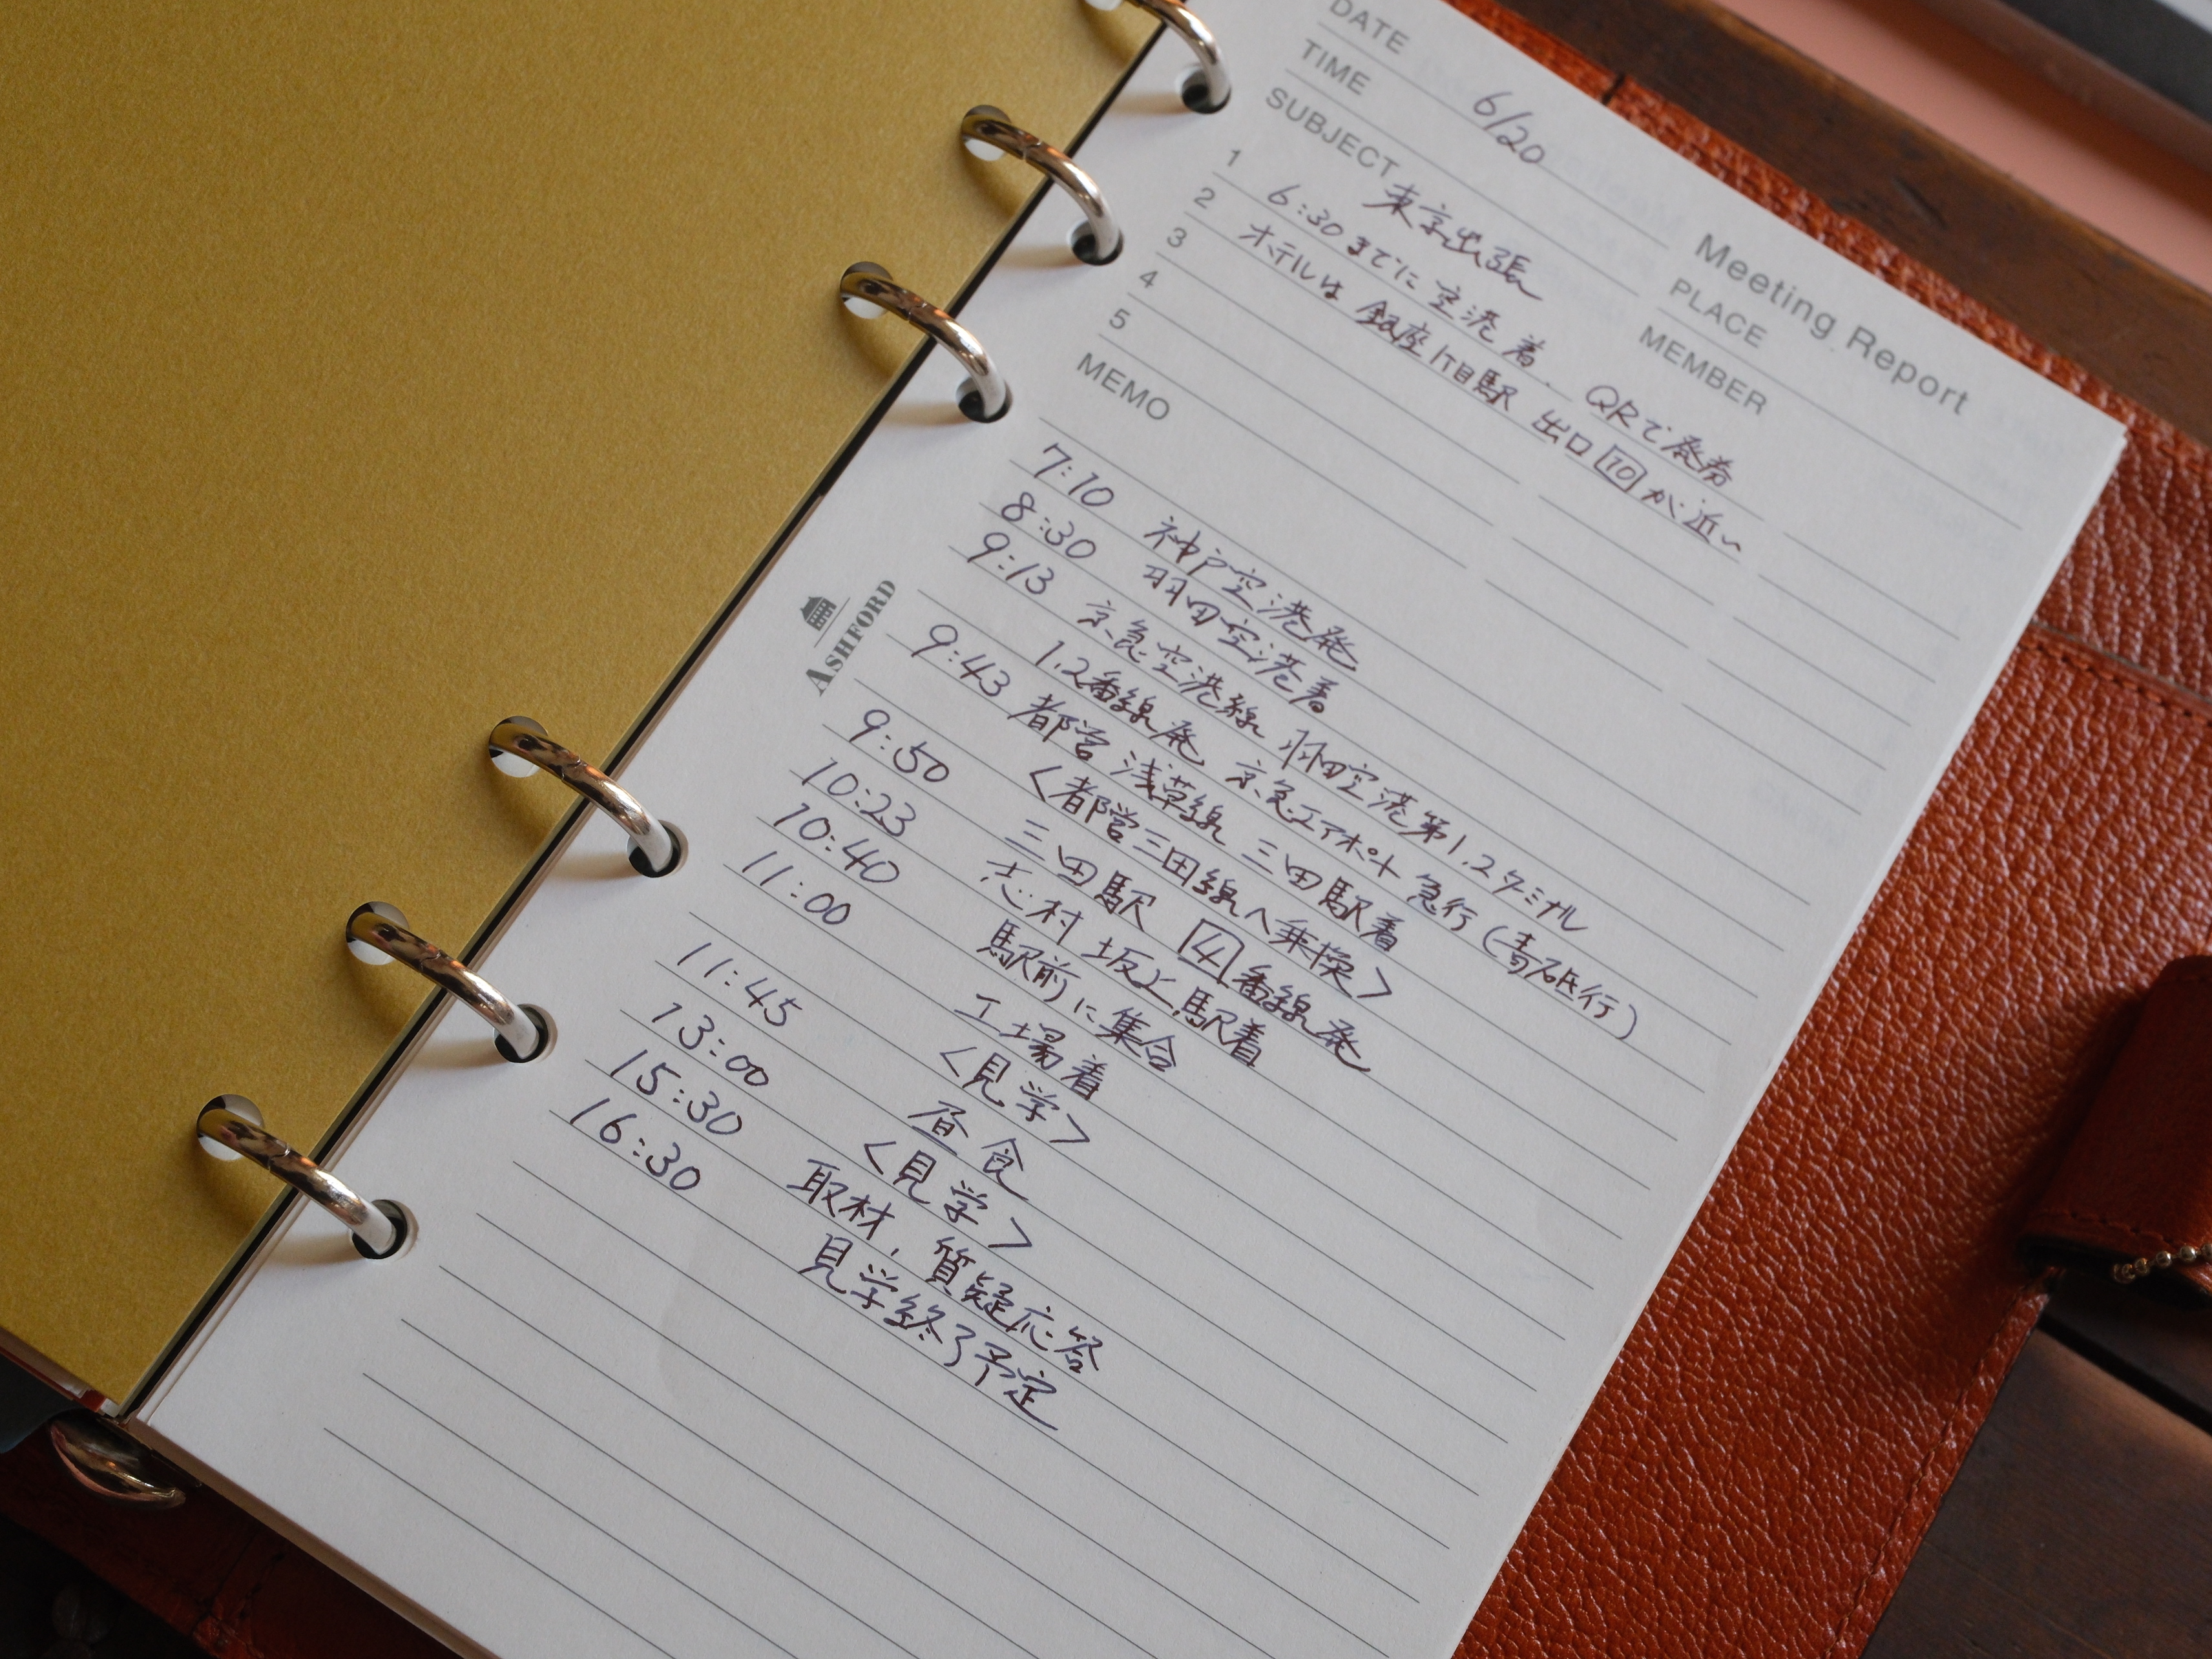 Meeting Report
DATE 6/20
TIME
PLACE
SUBJECT 東京出張
MEMBER
1 6:30までに空港着. QRで発券
2 ホテルは銀座1丁目駅 出口10が近い
3
4
5
MEMO
7:10 神戸空港発
8:30 羽田空港着
9:13 京急空港線 羽田空港第1.2ターミナル
1.2番線発 京急エアポート急行(青砥行)
9:43 都営浅草線 三田駅着
<都営三田線へ乗換>
9:50 三田駅 4番線発
10:23 志村坂上駅着
10:40 駅前に集合
11:00 工場着
<見学>
11:45 昼食
13:00 <見学>
15:30 取材, 質疑応答
16:30 見学終了予定
ASHFORD